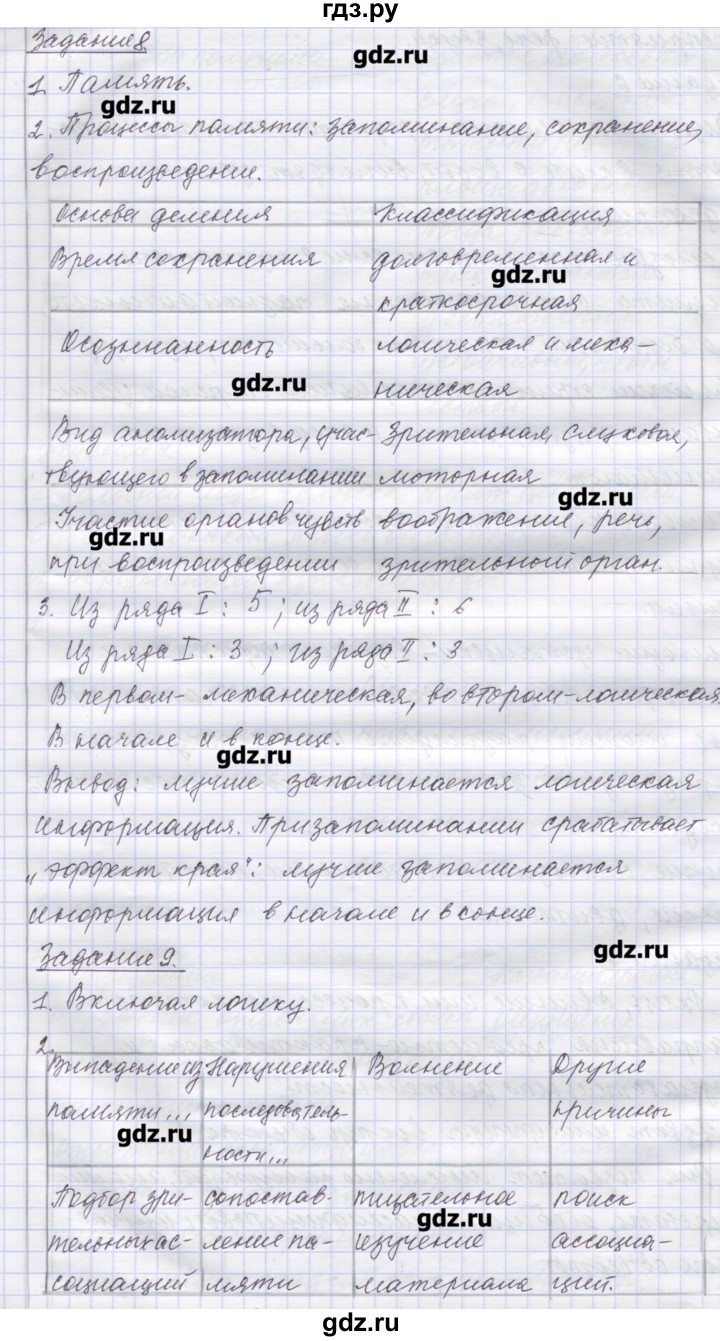 гдз.ру
Задание 8
gdz.ru
1. Память.
gdz.ru
2. Процессы памяти: запоминание, сохранение,
воспроизведение.
Основа деления классификация
Время сохранения долговременная и
gdz.ru
краткосрочная
Осознанность логическая и меха-
gdz.ru
ническая
Вид анализатора, учас- Зрительная, слуховая,
твующего в запоминании моторная
gdz.ru
Участие органов чувств воображение, речь,
gdz.ru
при воспроизведении зрительный орган.
3. Из ряда I : 5 ; из ряда II : 6
Из ряда I : 3 ; из ряда II : 3
В первом- механическая, во втором-логическая.
В начале и в конце.
gdz.ru
Вывод: лучше запоминается логическая
информация. При запоминании срабатывает
„эффект края": лучше запоминается
информация в начале и в конце.
gdz.ru
Задание 9.
1. Включая логику.
2.
Выпадение из Нарушения Волнение Другие
памяти... последователь- причины
gdz.ru
ности...
Подбор зри- сопостав- тщательное поиск
gdz.ru
тельных ас- ление па- изучение ассоциа-
социаций мяти материала ций.
gdz.ru